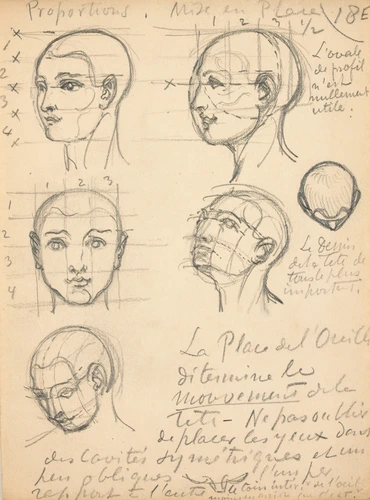 Proportions. Mise en Place 18E
1 2 3 1/2
L'ovale
de profil
n'est
nullement
utile.
1
2
3
4
1 2 3
1
2
3
4
Le Dessin
de la tete de
important.
La Place de l'Oreille
ditermine le
mouvement de la
teti - Ne pas oublier
de placer les yeux dans
des cavités symétriques et un
peu obliques l'un par
rapport à l'autre